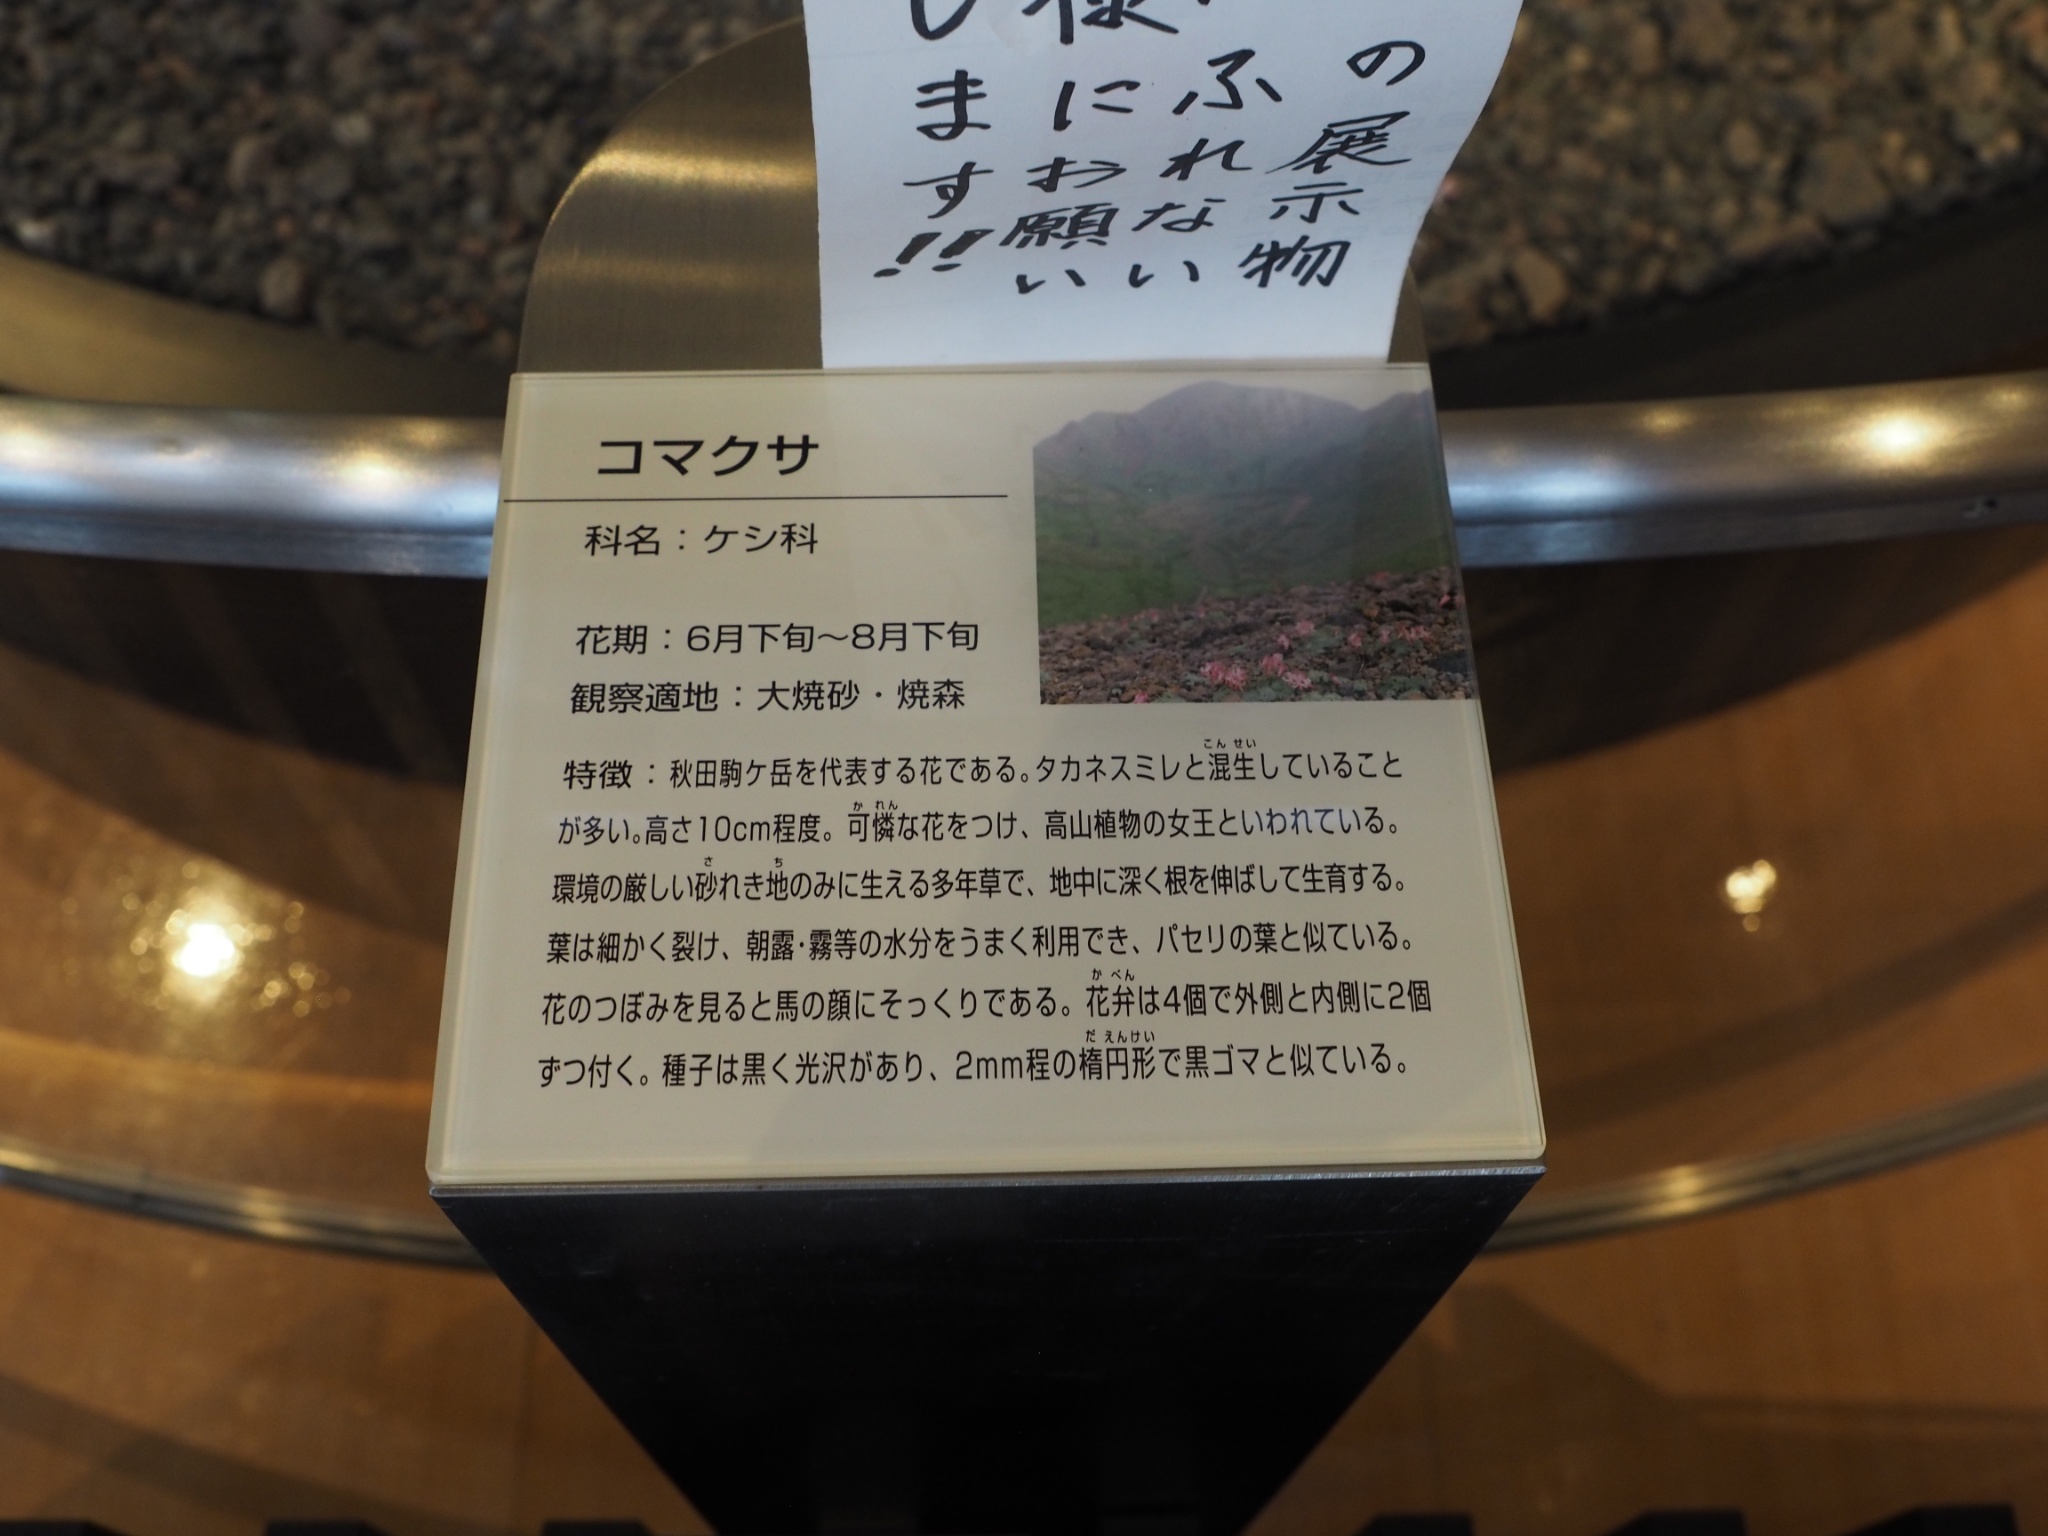 の展示物
ふれない
様にお願い
します!!
コマクサ
科名：ケシ科
花期：6月下旬～8月下旬
観察適地：大焼砂・焼森
特徴：秋田駒ケ岳を代表する花である。タカネスミレと混生していること
が多い。高さ10cm程度。可憐な花をつけ、高山植物の女王といわれている。
環境の厳しい砂れき地のみに生える多年草で、地中に深く根を伸ばして生育する。
葉は細かく裂け、朝露・霧等の水分をうまく利用でき、パセリの葉と似ている。
花のつぼみを見ると馬の顔にそっくりである。花弁は4個で外側と内側に2個
ずつ付く。種子は黒く光沢があり、2mm程の楕円形で黒ゴマと似ている。